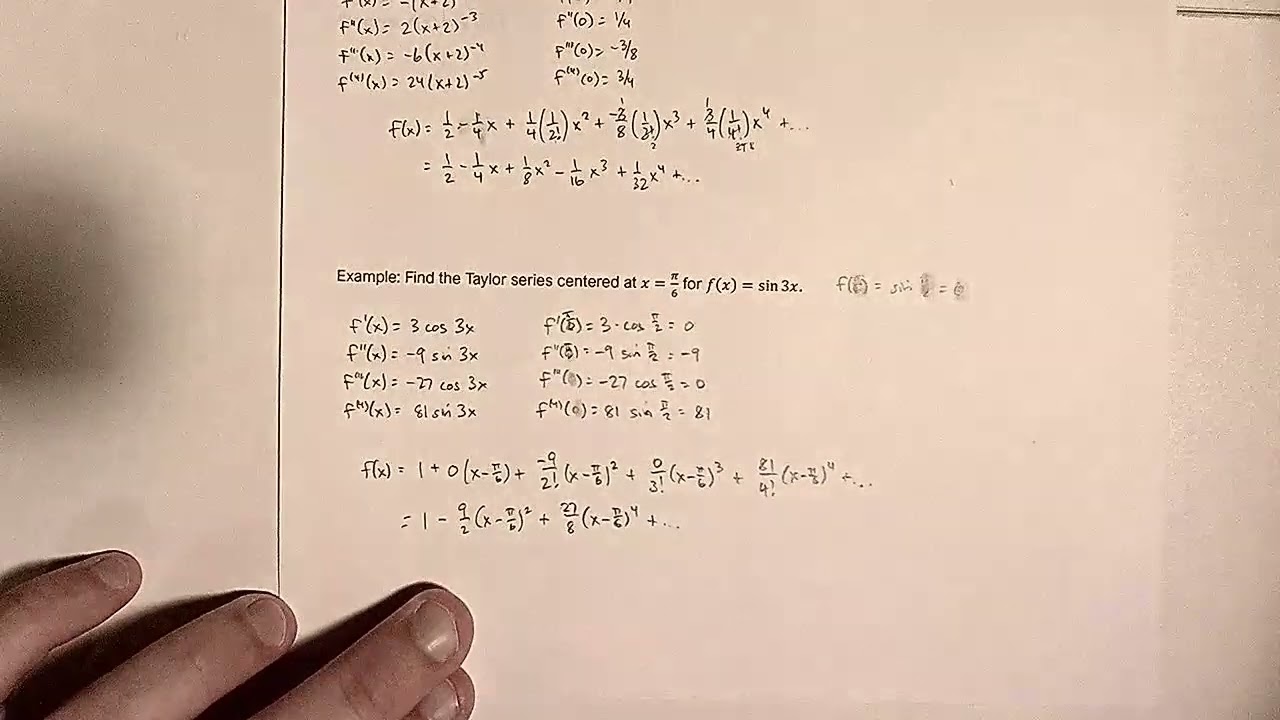 f'(x) = -(x+2)
f''(x) = 2(x+2)⁻³ f''(0) = 1/4
f'''(x) = -6(x+2)⁻⁴ f'''(0) = -3/8
f⁽⁴⁾(x) = 24(x+2)⁻⁵ f⁽⁴⁾(0) = 3/4
f(x) = 1/2 - 1/4x + 1/4(1/2!)x² + -3/8(1/3!)x³ + 3/4(1/4!)x⁴ + ...
= 1/2 - 1/4x + 1/8x² - 1/16x³ + 1/32x⁴ + ...
Example: Find the Taylor series centered at x = π/6 for f(x) = sin 3x. f( ) = sin =
f'(x) = 3 cos 3x f'(π/6) = 3 · cos π/2 = 0
f''(x) = -9 sin 3x f''(π/6) = -9 sin π/2 = -9
f'''(x) = -27 cos 3x f'''( ) = -27 cos π/2 = 0
f⁽⁴⁾(x) = 81 sin 3x f⁽⁴⁾(0) = 81 sin π/2 = 81
f(x) = 1 + 0(x-π/6) + -9/2!(x-π/6)² + 0/3!(x-π/6)³ + 81/4!(x-π/6)⁴ + ...
= 1 - 9/2(x-π/6)² + 27/8(x-π/6)⁴ + ...